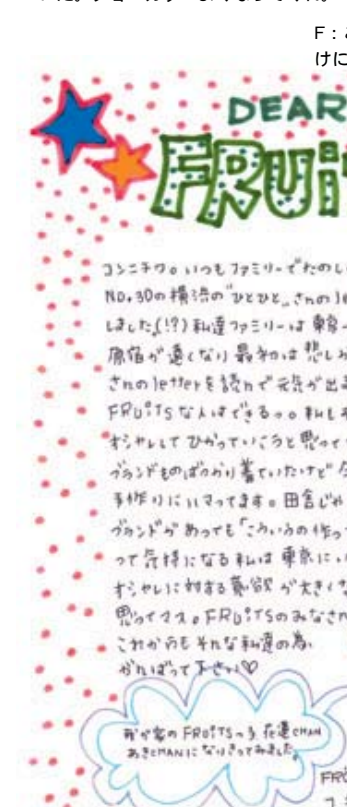 F：
けに
DEAR
FRUi
コンニチワ。いつもファミリーでたのし
NO.30の横浜の"ひとひと"さんのle
しました(!?)私達ファミリーは東京
原宿が遠くなり最初は悲し
さんのletterを読んで元気が出
FRUiTSな人はできるっ。私も
オシャレしてひかっていこうと思ってい
ブランドものばっかり着ていたけど
手作りにハマってます。田舎じゃ
ブランドがあっても「こういうの作っ
って気持になる私は東京に
オシャレに対する意欲が大きく
思ってマス。FRUiTSのみなさん
これからもそんな私達の為、
がんばって下さい♡
我が家のFRUiTSっ子花蓮CHAN
あきCHANになりきってみました。
FR